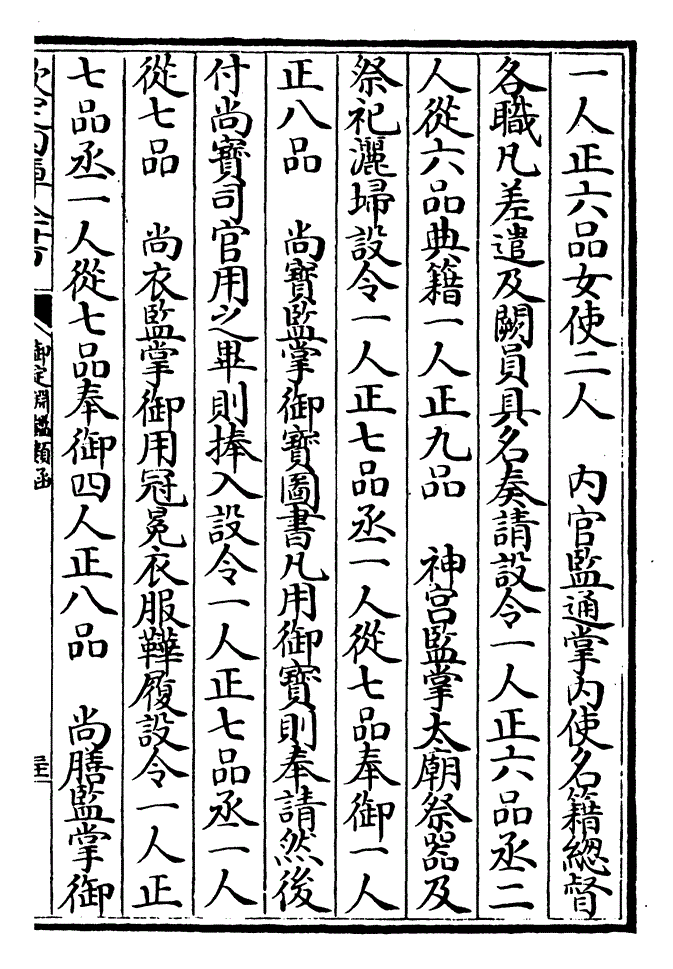 一人正六品女使二人　内官監通掌内使名籍總督
各職凡差遣及闕員具名奏請設令一人正六品丞二
人從六品典籍一人正九品　神宫監掌太廟祭器及
祭祀灑埽設令一人正七品丞一人從七品奉御一人
正八品　尚寳監掌御寳圖書凡用御寳則奉請然後
付尚寳司官用之畢則捧入設令一人正七品丞一人
從七品　尚衣監掌御用冠冕衣服鞾履設令一人正
七品丞一人從七品奉御四人正八品　尚膳監掌御
御定淵鑑類函